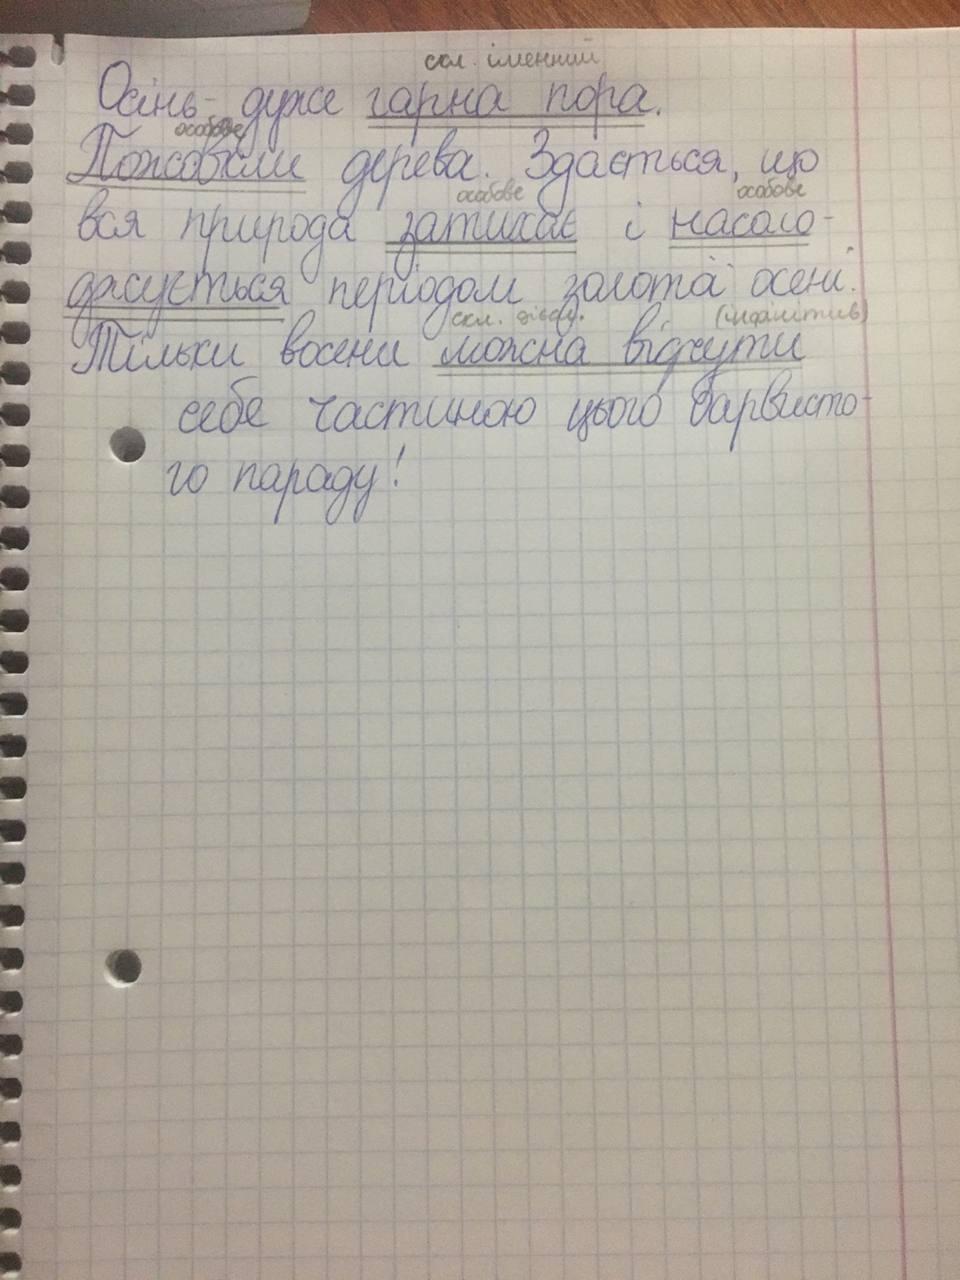 скл. іменний
Осінь - дуже гарна пора.
особове
Пожовкли дерева. Здається, що
особове особове
вся природа затихає і насоло-
джується періодом золота осені.
скл. дієсл. (інфінітив)
Тільки восени можна відчути
себе частиною цього барвисто-
го параду!